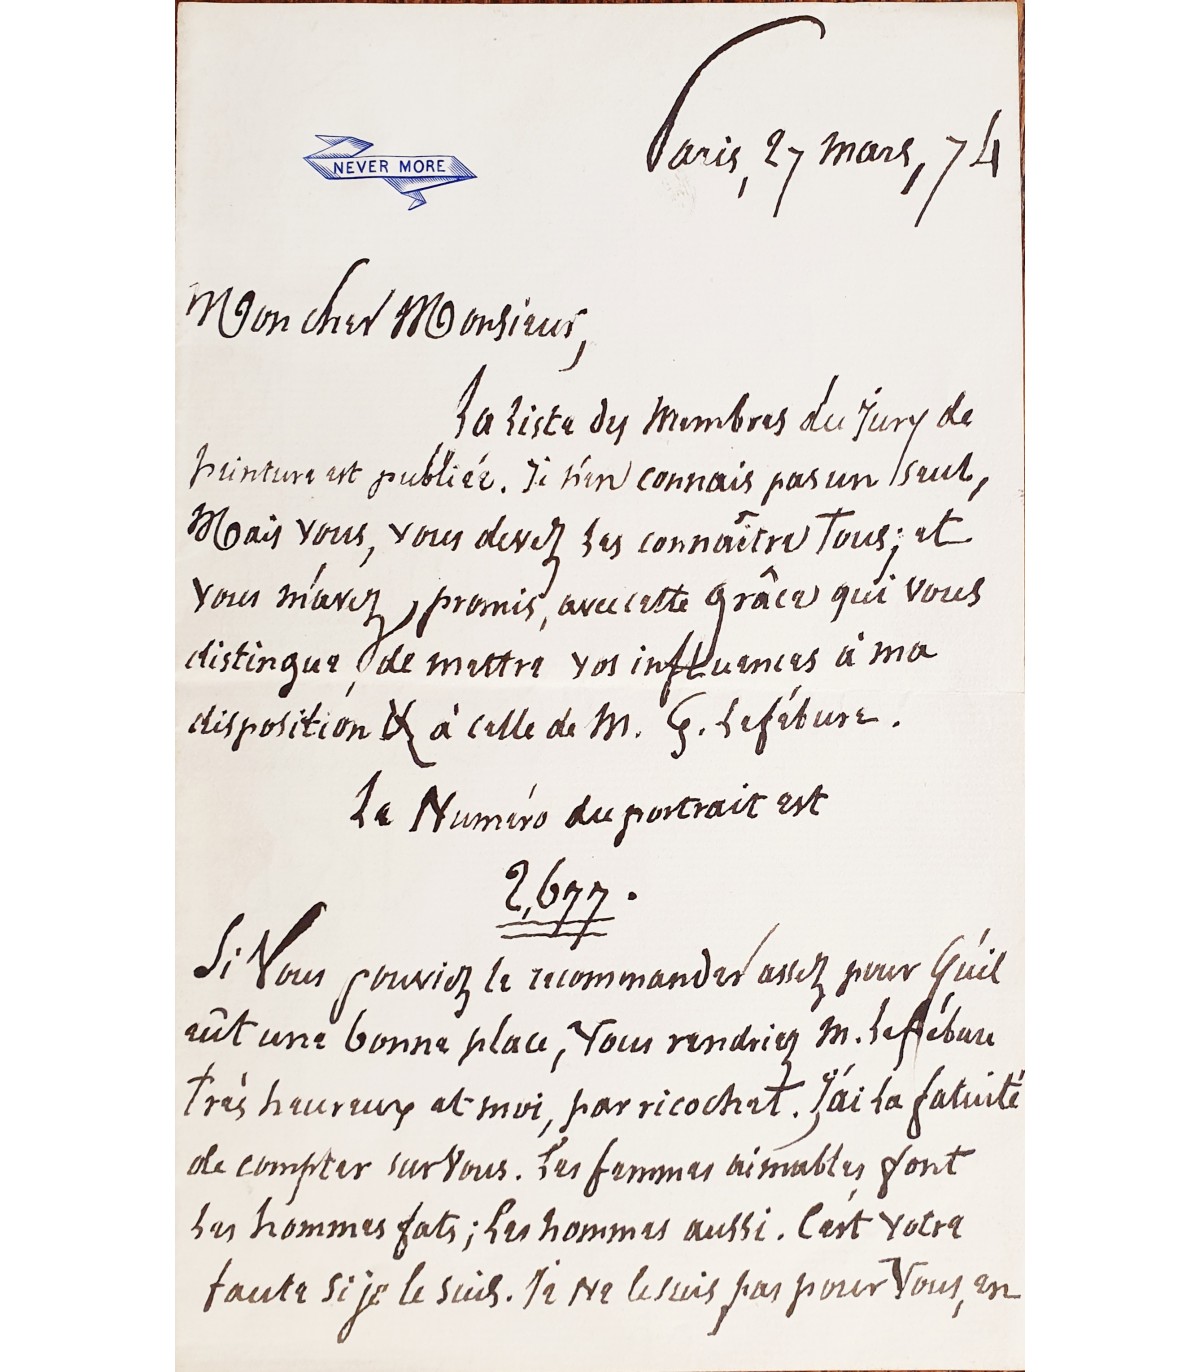 NEVER MORE
Paris, 27 mars, 74
Mon cher Monsieur,
La Liste des Membres du Jury de
peinture est publiée. Je n'en connais pas un seul,
Mais vous, vous devez les connaître Tous; et
vous m'avez promis, avec cette grâce qui vous
distingue, de mettre vos influences à ma
disposition & à celle de M. G. Lefébure.
Le Numéro du portrait est
2,677.
Si Vous pouviez le recommander assez pour qu'il
eût une bonne place, Vous rendriez M. Lefébure
Très heureux et moi, par ricochet. J'ai la fatuité
de compter sur Vous. Les femmes aimables font
les hommes fats; les hommes aussi. C'est votre
faute si je le suis. Je ne le suis pas pour Vous, en